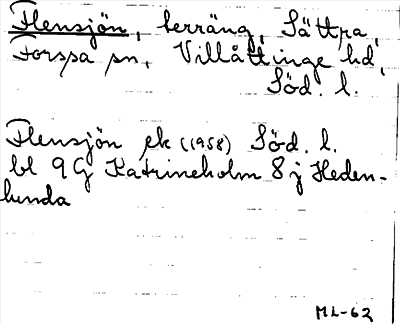 Flensjön, terräng, Sättra,
Forssa sn, Villåttinge hd,
Söd. l.
Flensjön ek (1958) Söd. l.
bl 9G Katrineholm 8 j Heden-
lunda
ML-62